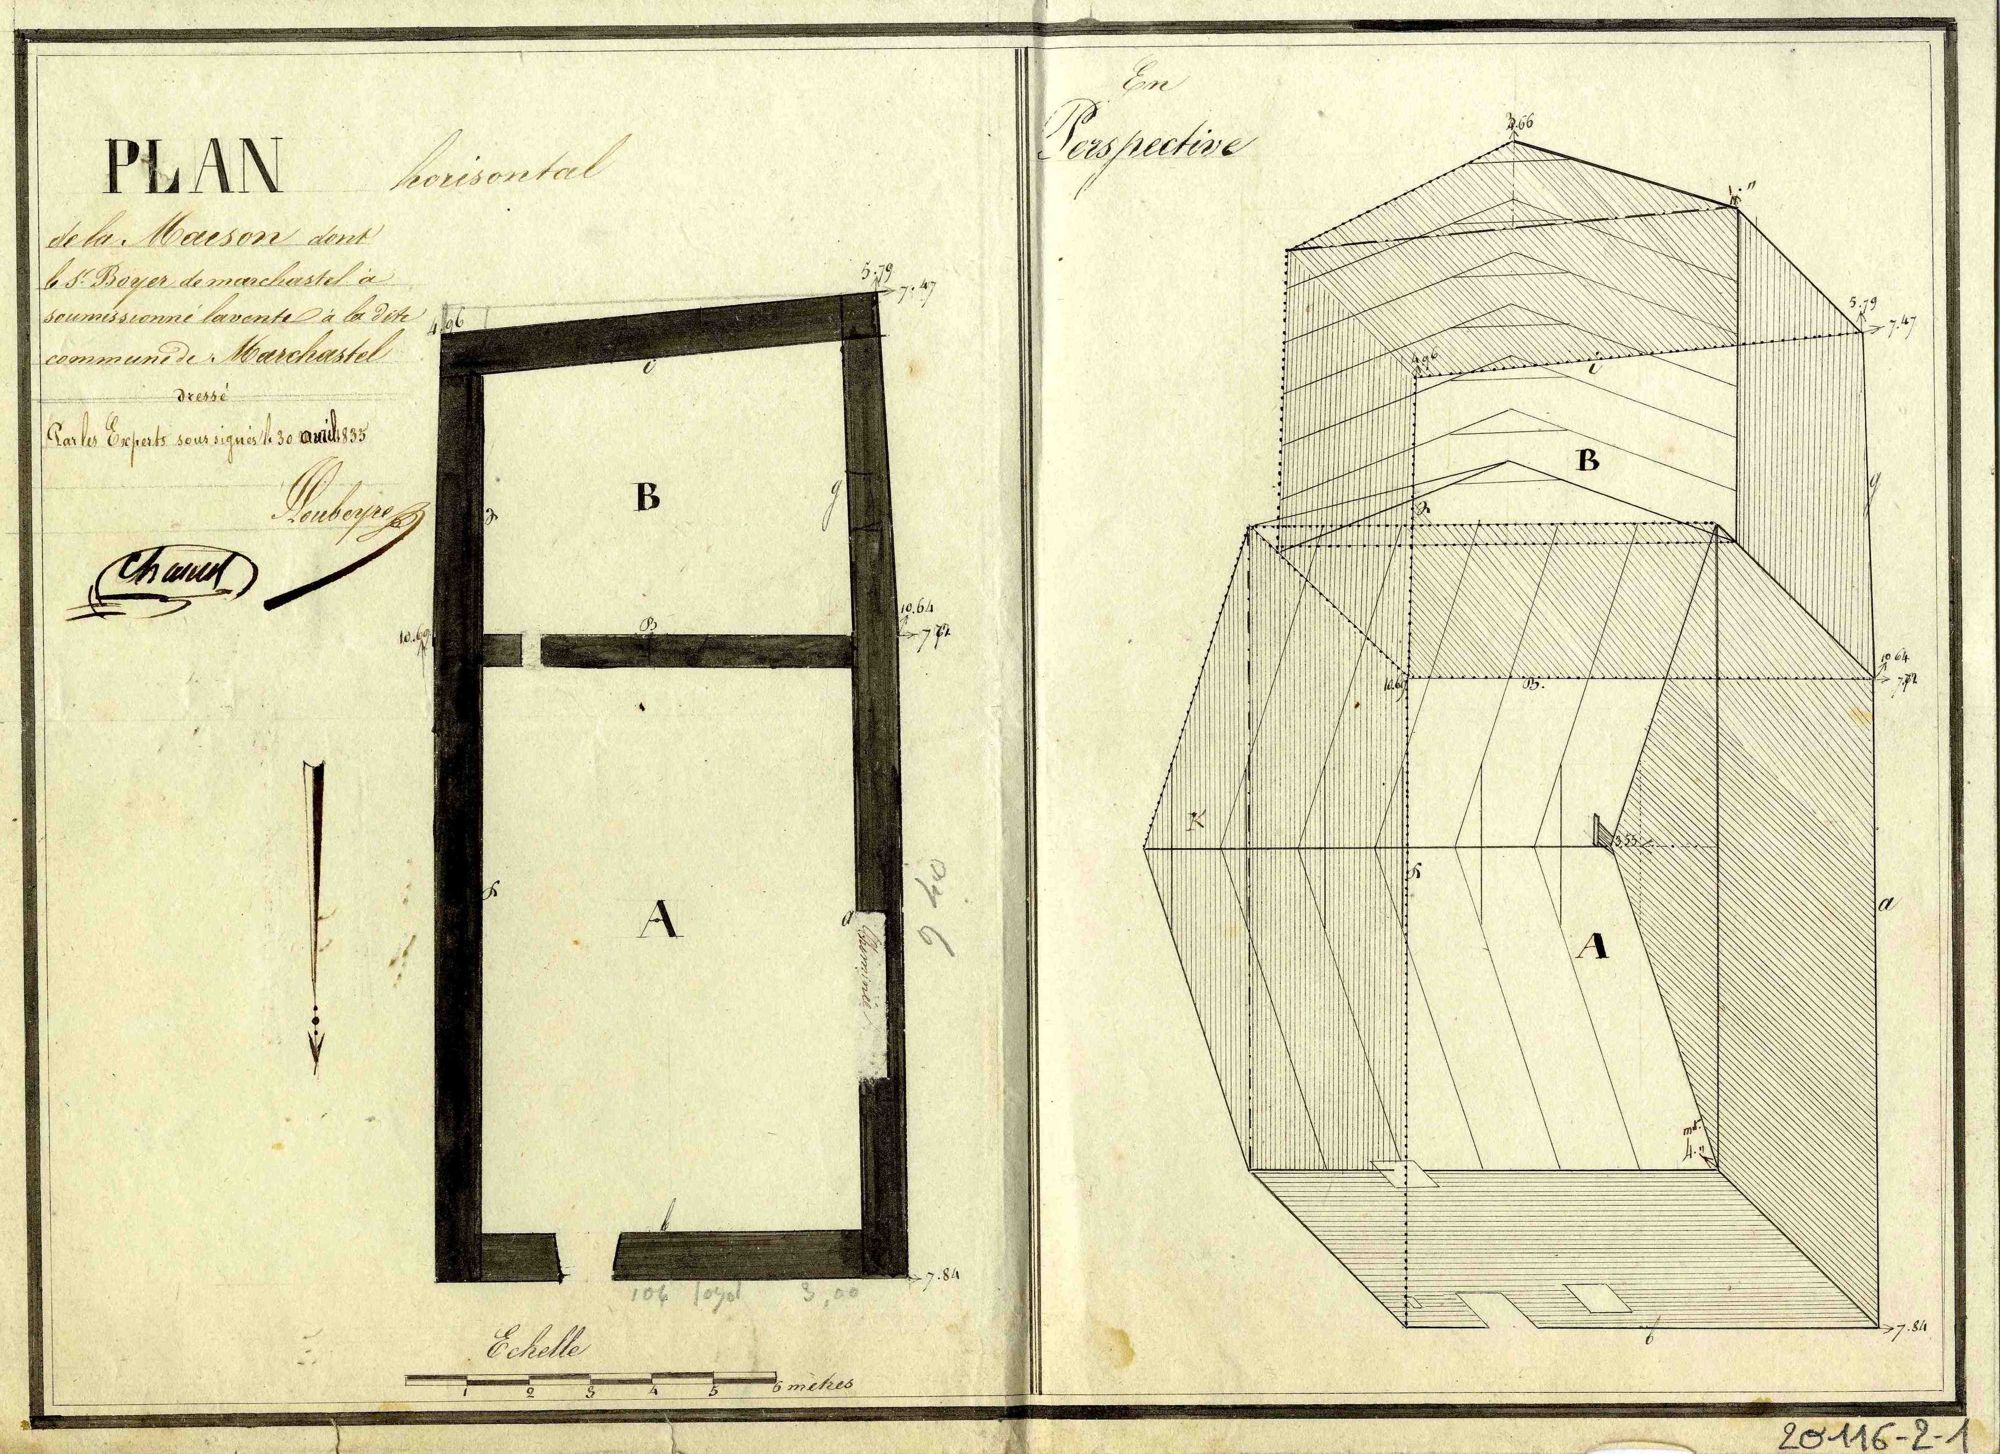 PLAN horisontal
de la Maison dont
le Sr. Boyer de marchastel à
soumissionné la vente à la dite
commune de Marchastel
dressé
Par les Experts soussignés le 30 avril 1835
Loubeyre
En
Perspective
4.96
5.79
7.47
i
B
g
10.69
10.64
7.72
B
A
a
Cheminée
9 40
b
7.84
3,00
Echelle
1 2 3 4 5 6 mètres
3.66
4."
5.79
7.47
4.96
i
B
g
10.64
7.72
10.69
B.
K
3,55
a
A
mt.
4."
b
7.84
20116-2-1